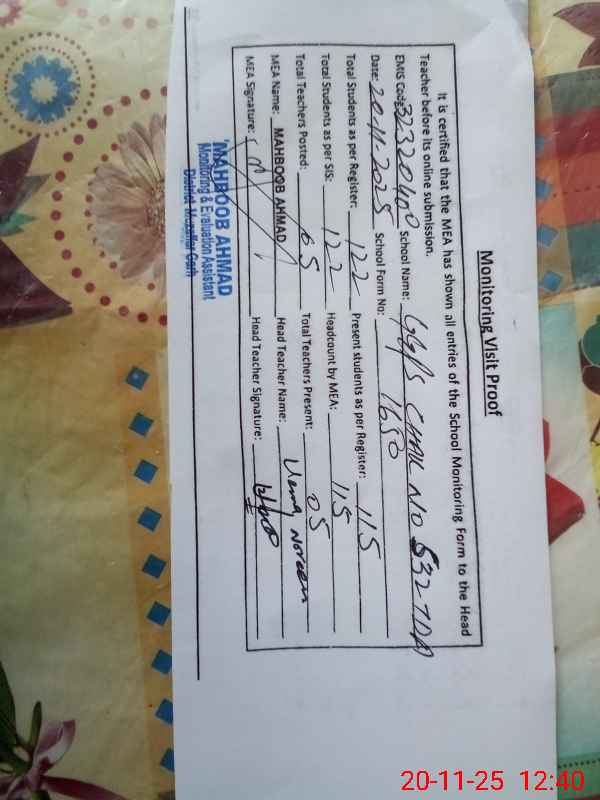 Monitoring Visit Proof
It is certified that the MEA has shown all entries of the School Monitoring Form to the Head
Teacher before its online submission.
EMIS Code: 323320400 School Name: GGPS CHAK NO 532 TDA
Date: 20-11-2025 School Form No: 1650
Total Students as per Register: 122 Present students as per Register: 115
Total Students as per SIS: 122 Headcount by MEA: 115
Total Teachers Posted: 05 Total Teachers Present: 05
MEA Name: MAHBOOB AHMAD Head Teacher Name: Noreen
MEA Signature: Head Teacher Signature:
MAHBOOB AHMAD
Monitoring & Evaluation Assistant
District Muzaffar Garh
20-11-25 12:40